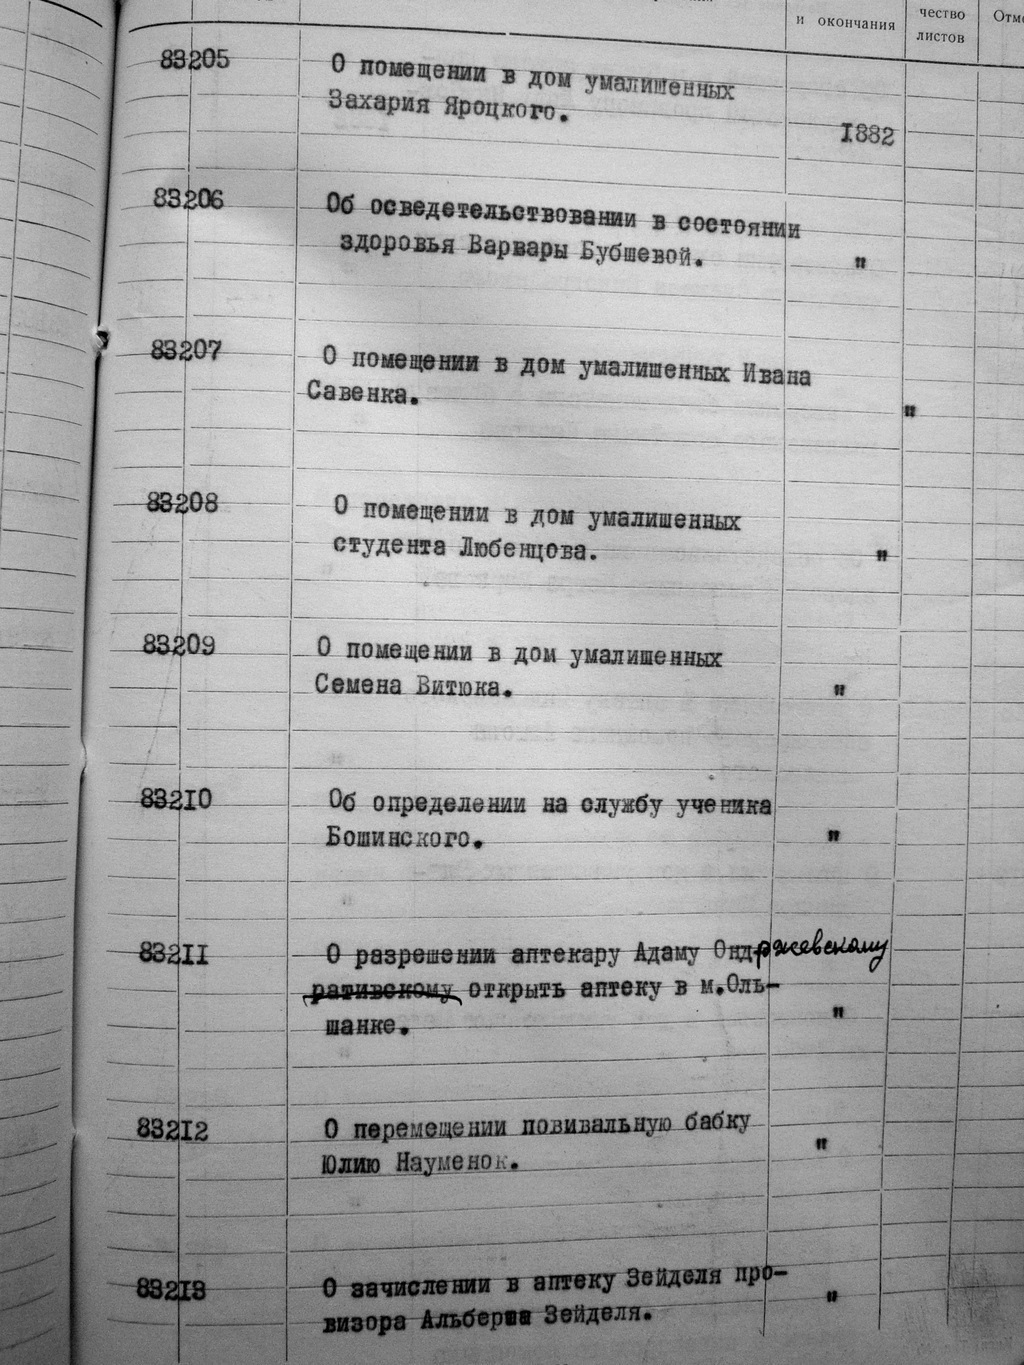 и окончания
чество
листов
83205
О помещении в дом умалишенных
Захария Яроцкого.
1882
83206
Об осведетельствовании в состоянии
здоровья Варвары Бубшевой.
"
83207
О помещении в дом умалишенных Ивана
Савенка.
"
83208
О помещении в дом умалишенных
студента Любенцова.
"
83209
О помещении в дом умалишенных
Семена Витюка.
"
83210
Об определении на службу ученика
Бошинского.
"
83211
О разрешении аптекару Адаму Ондржевскому
ративскому открыть аптеку в м.Оль-
шанке.
"
83212
О перемещении повивальную бабку
Юлию Науменок.
"
83213
О зачислении в аптеку Зейделя про-
визора Альберта Зейделя.
"